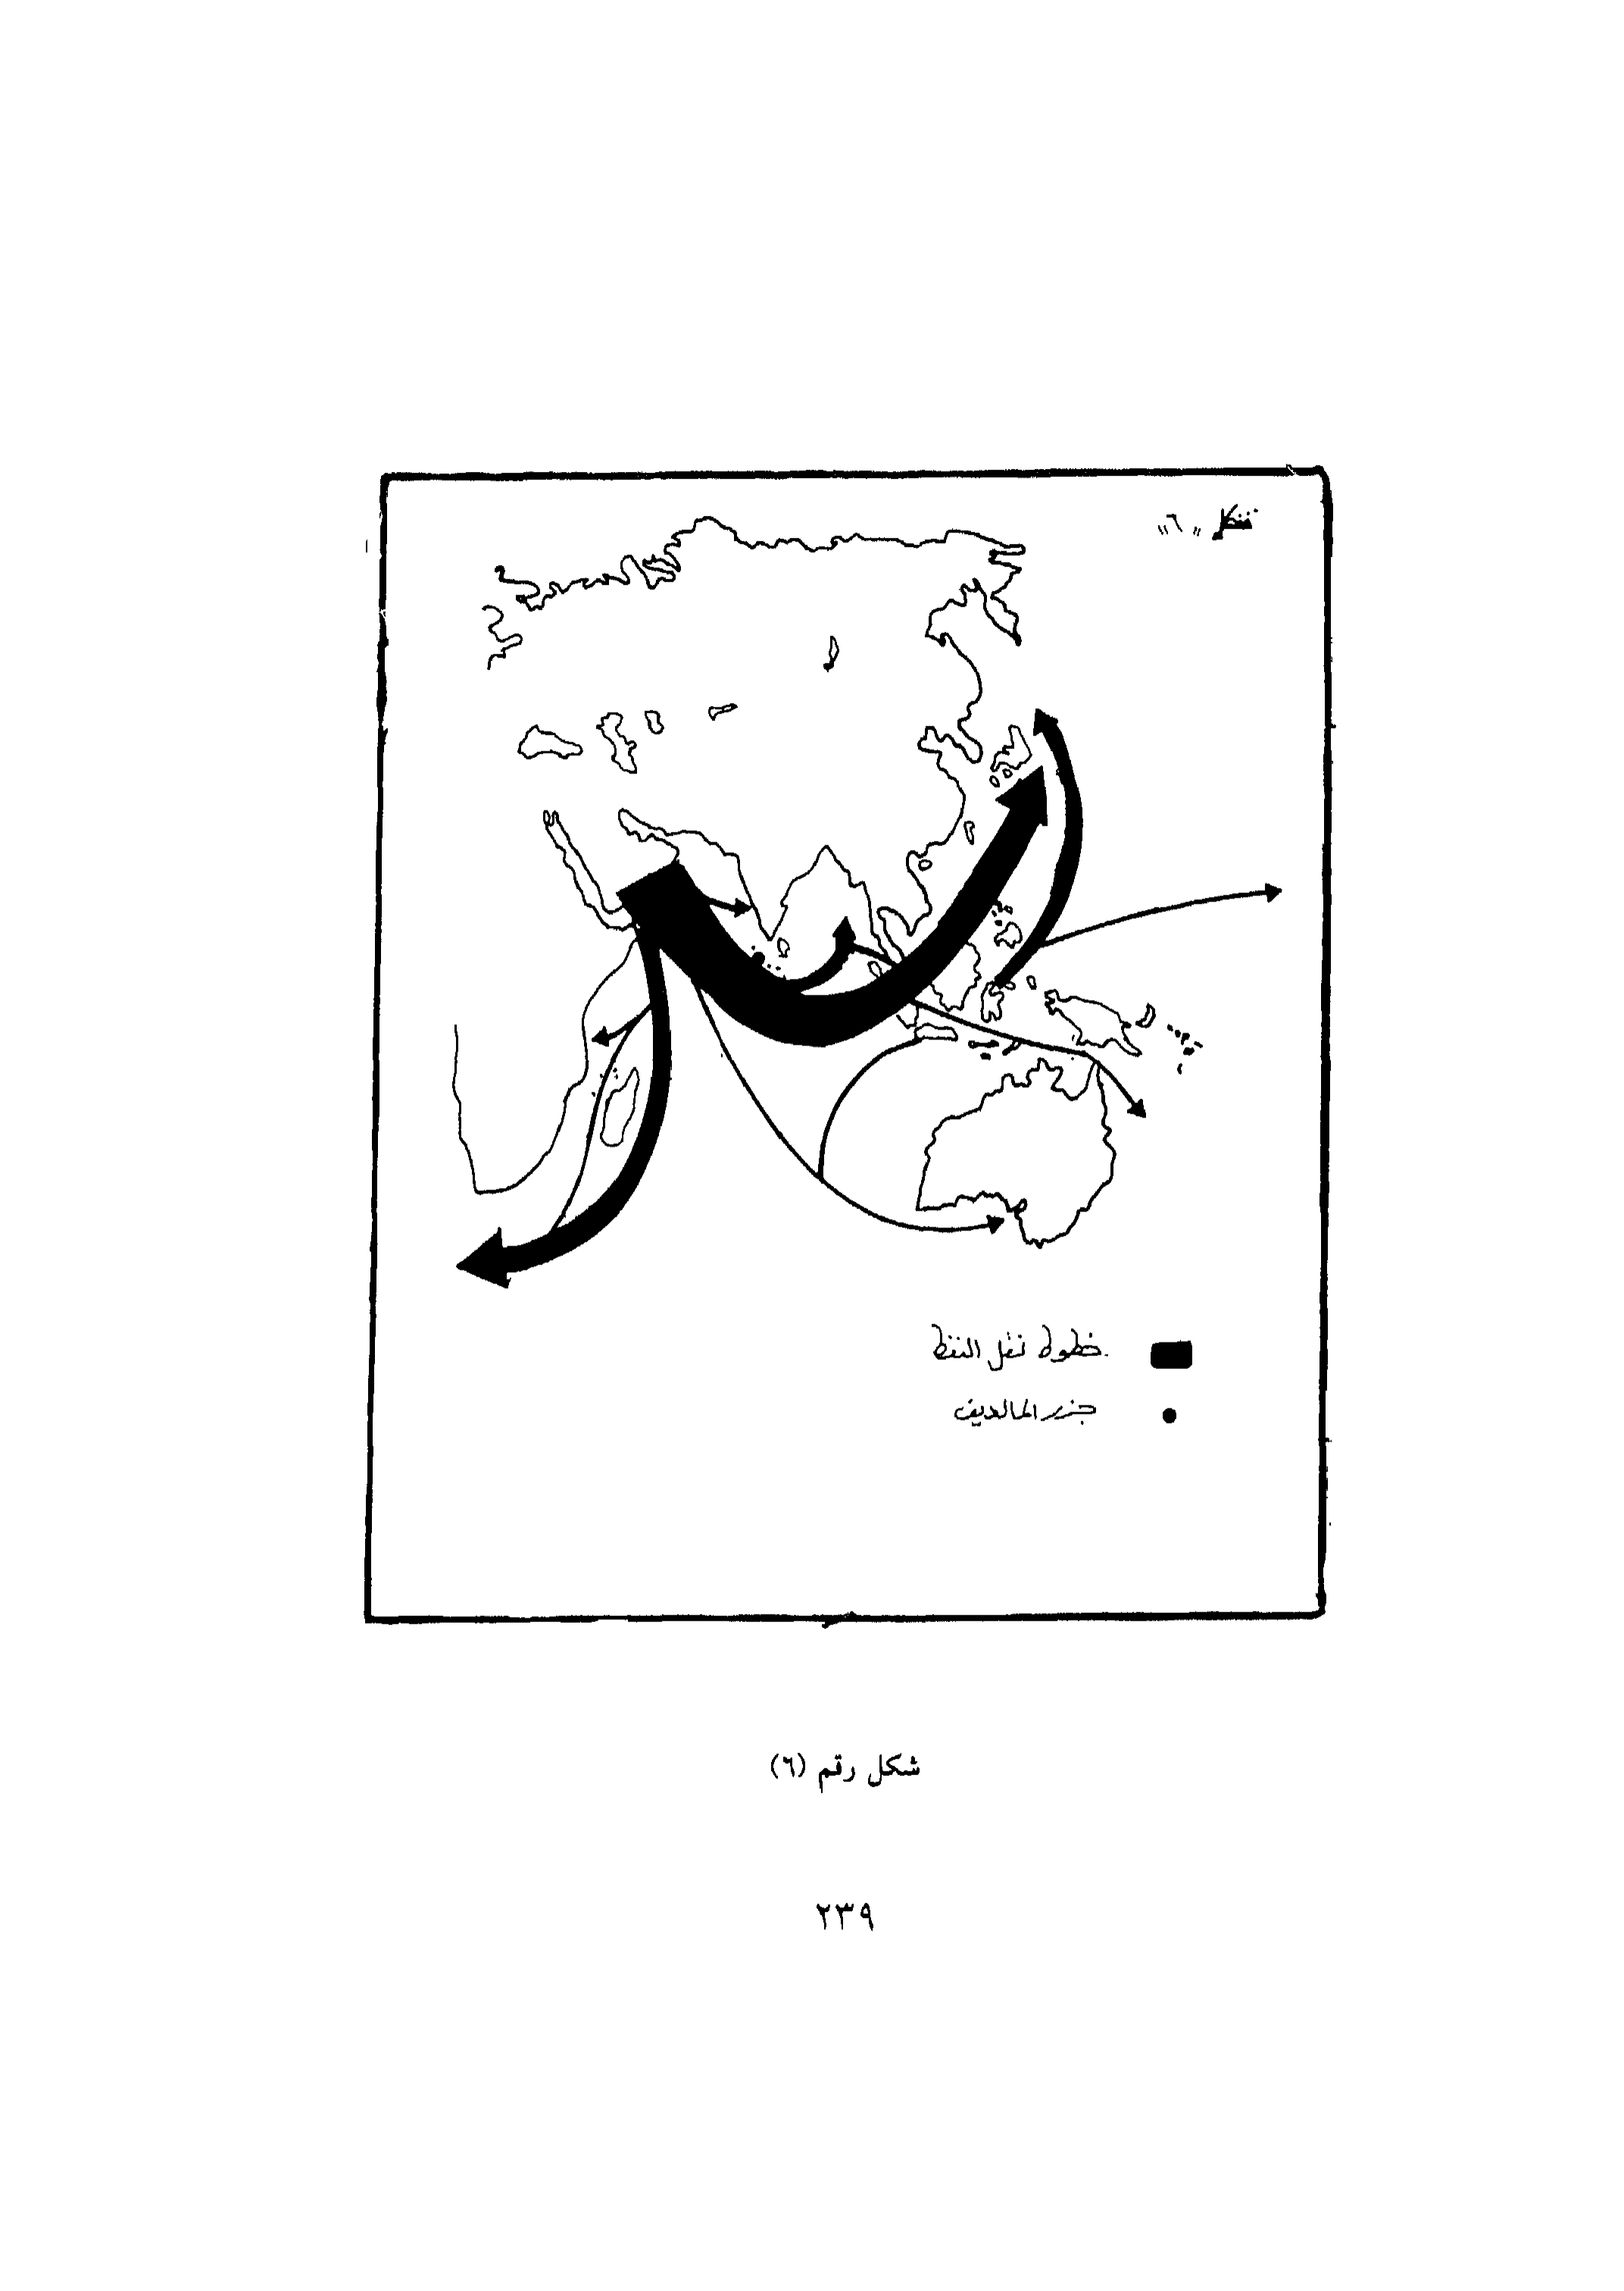 شكل "٦"
خطوط نقل النفط
جزر المالديف
شكل رقم (٦)
٢٣٩